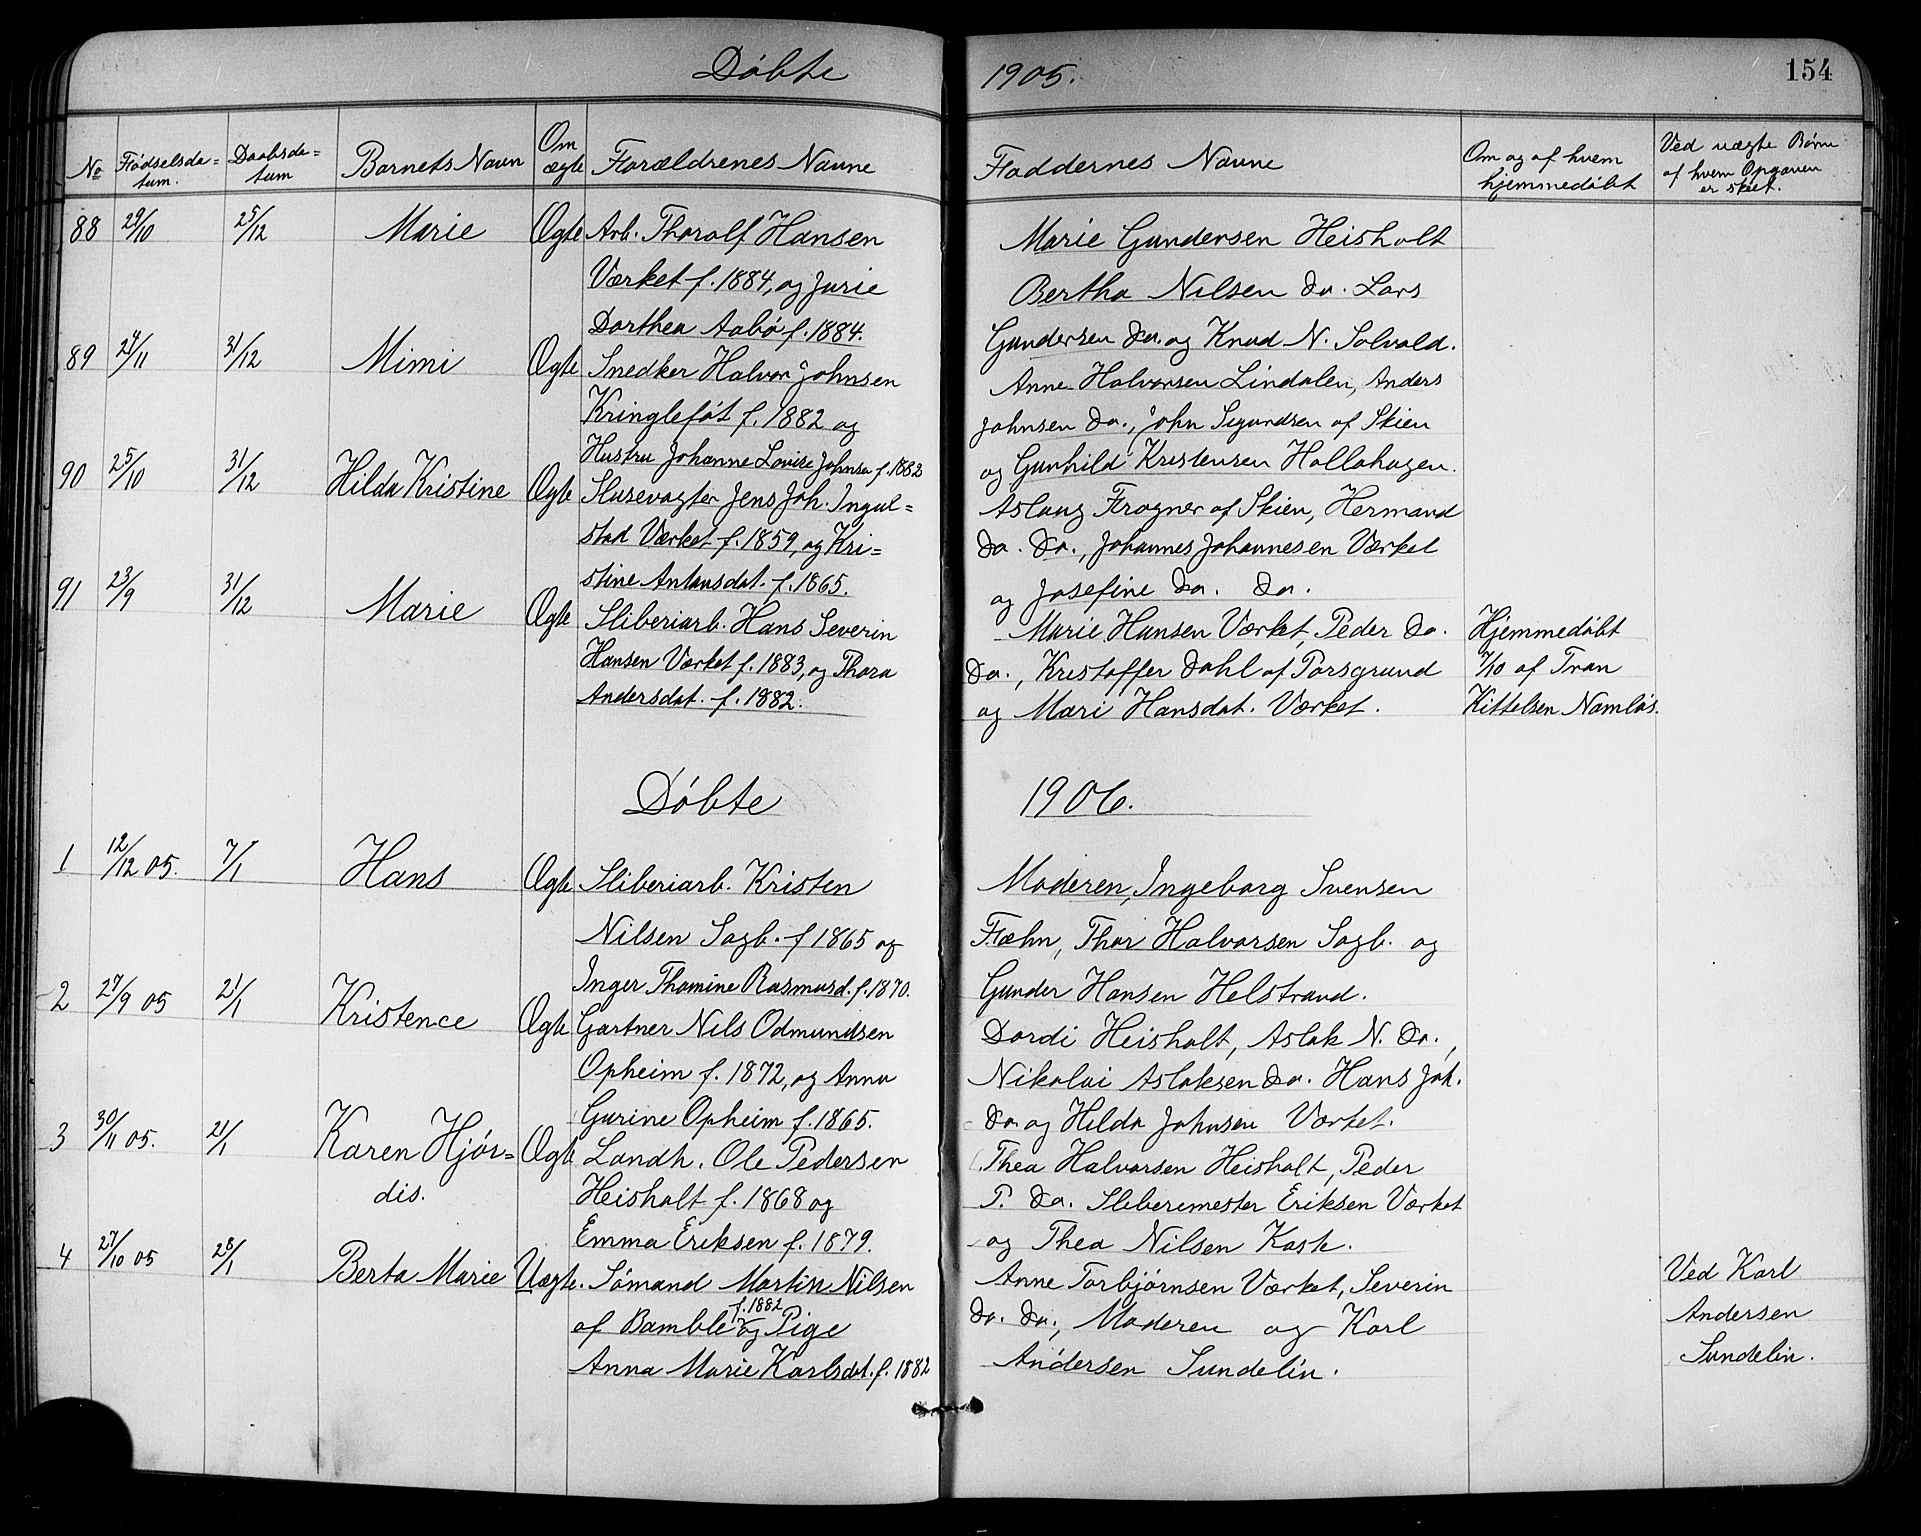 Døbte 1905. 154
No Fødselsdatum. Daabsdatum Barnets Navn Om ægte Forældrenes Navne Faddernes Navne Om og af hvem hjemmedøbt Ved uægte Børn af hvem Opgaven er skeet.
88 29/10 25/12 Marie Ægte Arb. Thorolf Hansen Marie Gundersen Heisholt
Værket f. 1884, og Jurie Bertha Nilsen do. Lars
Dorthea Aabø f. 1884. Gundersen do. og Knud N. Solvold.
89 24/11 31/12 Mimi Ægte Snedker Halvor Johnsen Anne Halvorsen Lindalen, Anders
Kringlefót f. 1882 og Johnsen do., John Sigurdsen af Skien
Hustru Johanne Lovise Johnsen f. 1882 og Gunhild Kristensen Hollahagen.
90 25/10 31/12 Hilda Kristine Ægte Slusevogter Jens Joh. Ingul= Aslaug Frogner af Skien, Hermand
stad Værket f. 1859, og Kri= do. do., Johannes Johannesen Værket
stine Antonsdat. f. 1865. og Josefine do. do.
91 23/9 31/12 Marie Ægte Sliberiarb. Hans Severin Marie Hansen Værket, Peder do. Hjemmedøbt
Hansen Værket f. 1883, og Thora do., Kristoffer Dahl af Porsgrund 7/10 af Tran
Andersdat. f. 1882. og Mari Hansdat. Værket. Kittelsen Namløs.
Døbte 1906.
1 12/12 05. 7/1 Hans Ægte Sliberiarb. Kristen Moderen, Ingeborg Svensen
Nilsen Sagb. f 1865 og Fæhn, Thor Halvorsen Sagb. og
Inger Thomine Rasmusd. f. 1870. Gunder Hansen Helstrand.
2 27/9 05 21/1 Kristence Ægte Gartner Nils Odmundsen Dordi Heisholt, Aslak N. do.,
Opheim f. 1872, og Anna Nikolai Aslaksen do. Hans Joh.
Gurine Opheim f. 1865. do. og Hilda Johnsen Værket.
3 30/11 05. 21/1 Karen Hjør= Ægte Landh. Ole Pedersen Thea Halvorsen Heisholt, Peder
dis. Heisholt f. 1868 og P. do. Sliberimester Eriksen Værket
Emma Eriksen f. 1879. og Thea Nilsen Kaste.
4 27/10 05 28/1 Berta Marie Uægte. Sømand Martin Nilsen Anne Torbjørnsen Værket, Severin Ved Karl
af Bamble f. 1882 og Pige do. do., Moderen og Karl Andersen
Anna Marie Karlsdat. f. 1882 Andersen Sundelin. Sundelin.